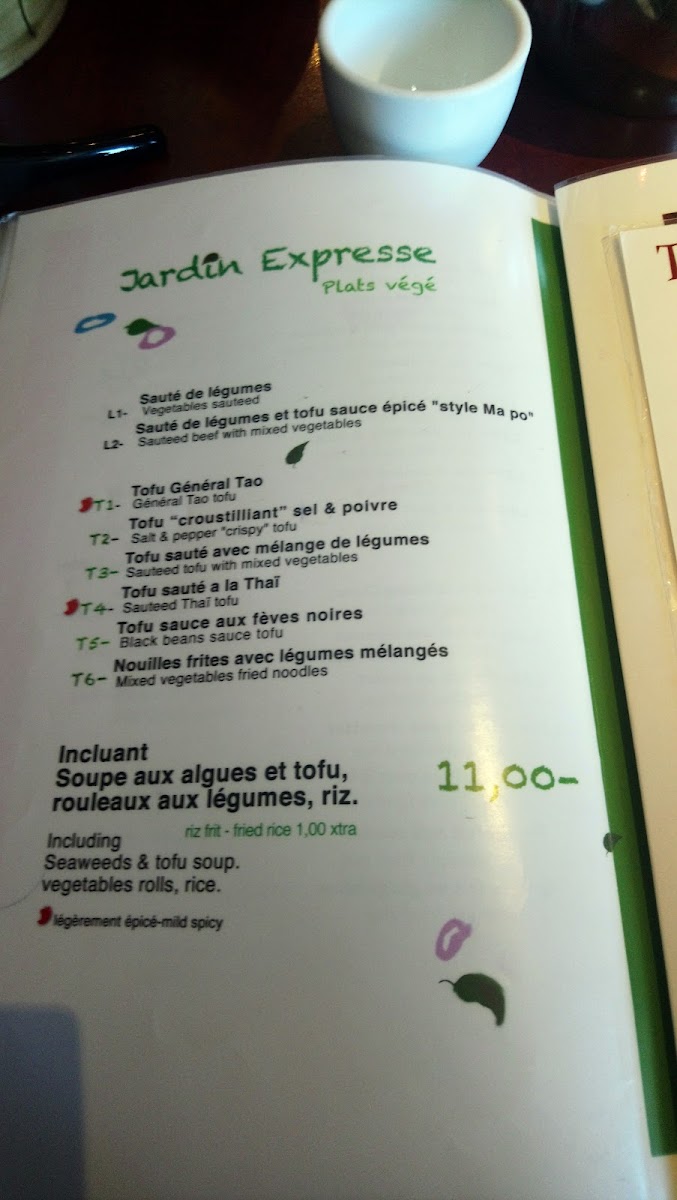 Jardin Expresse
Plats végé
Sauté de légumes
L1- Vegetables sauteed
Sauté de légumes et tofu sauce épicé "style Ma po"
L2- Sauteed beef with mixed vegetables
Tofu Général Tao
T1- Général Tao tofu
Tofu "croustilliant" sel & poivre
T2- Salt & pepper "crispy" tofu
Tofu sauté avec mélange de légumes
T3- Sauteed tofu with mixed vegetables
Tofu sauté a la Thaï
T4- Sauteed Thaï tofu
Tofu sauce aux fèves noires
T5- Black beans sauce tofu
Nouilles frites avec légumes mélangés
T6- Mixed vegetables fried noodles
Incluant
Soupe aux algues et tofu,
rouleaux aux légumes, riz.
11,00-
riz frit - fried rice 1,00 xtra
Including
Seaweeds & tofu soup.
vegetables rolls, rice.
légèrement épicé-mild spicy
T